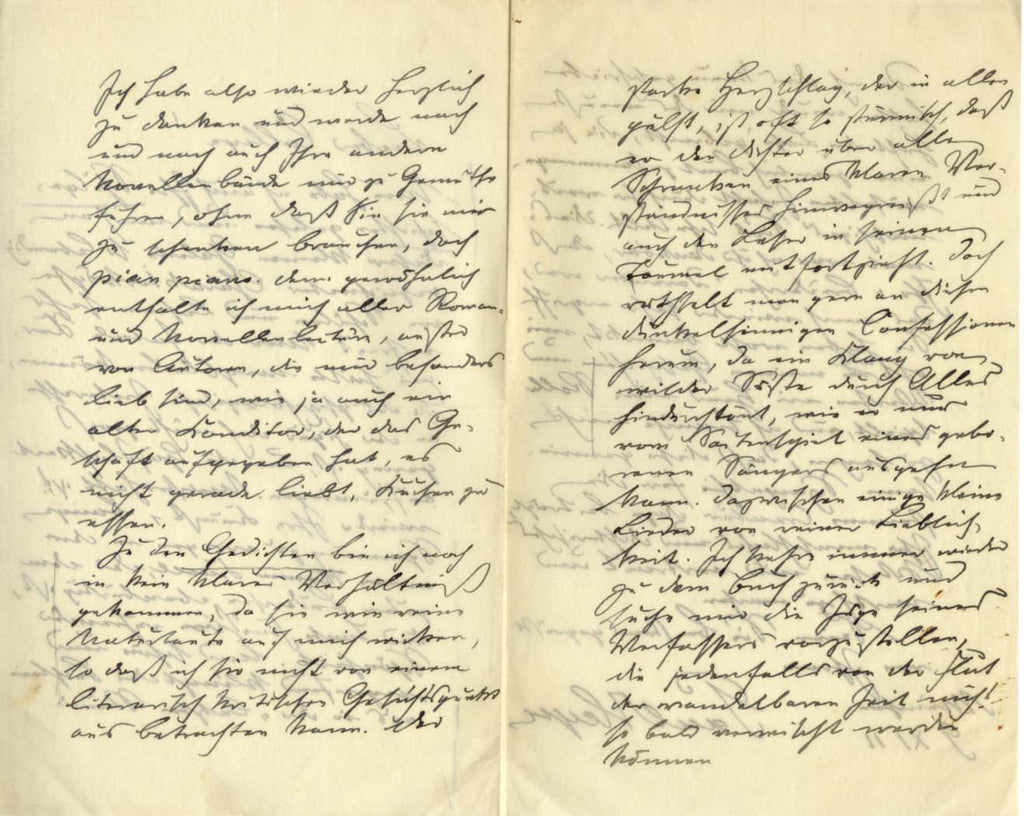 Ich habe also wieder herzlich
zu danken und werde nach
und nach auch Ihre andern
Novellenbände mir zu Gemüthe
führen, ohne daß Sie sie mir
zu schenken brauchen, doch
pian piano. denn gewöhnlich
enthalte ich mich aller Roman-
und Novellenlectüre, außer
von Autoren, die mir besonders
lieb sind, wie ja auch ein
alter Conditor, der das Ge-
schäft aufgegeben hat, es
nicht gerade liebt, Kuchen zu
essen.
Zu den Gedichten bin ich noch
in kein klares Verhältniß
gekommen, da sie wie reine
Naturlaute auf mich wirken,
so daß ich sie nicht von einem
literarisch kritischen Gesichtspunkt
aus betrachten kann. Der
starke Herzschlag, der in allen
pulst, ist oft so stürmisch, daß
er den Dichter über alle
Schranken eines klaren Ver-
ständnisses hinwegreißt und
auch den Leser in seinen
Taumel mitfortzieht. Doch
räthselt man gern an diesen
dunkelsinnigen Confessionen
herum, da ein Klang von
wilder Süße durch Alles
hindurchtönt, wie er nur
vom Saitenspiel eines gebo-
renen Sängers ausgehn
kann. Dazwischen einige kleine
Lieder von reiner Lieblich-
keit. Ich kehre immer wieder
zu dem Buch zurück und
suche mir die Züge seines
Verfassers vorzustellen,
die jedenfalls von der Flut
der wandelbaren Zeit nicht
so bald verwischt werden
können